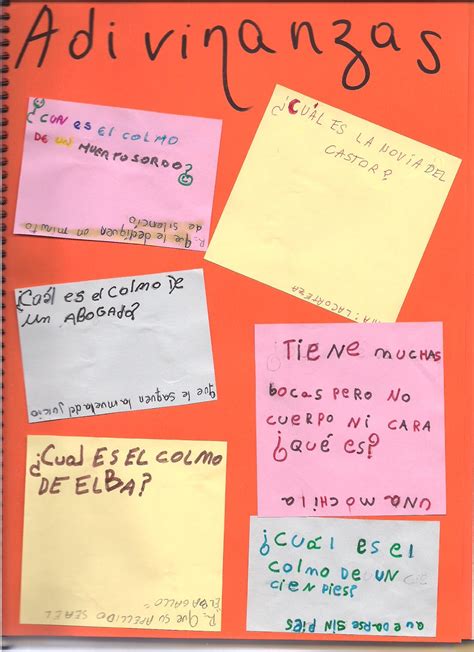 Adivinanzas
¿CUAl es EL COLMO
DE UN MUERTO SORDO?
R. que le dediquen un minuto
de silencio
¿CUÁL ES LA NOVIA DEL
CASTOR?
LACORTEZA
¿Cuál es el colmo DE
un ABOGADO?
que le saquen la muela del juicio
¡TIENE MUCHAS
bocas PERO NO
CUERPO NI CARA
¿QUÉ ES?
UNA MOCHILA
¿CUAl ES EL COLMO
DE ELBA?
R. QUE SU APELLIDO SEA EL
"ELBA GALLO"
¿CUÁL ES EL
COLMO DE UN
CIEN PIES?
QUEDARSE SIN PIES